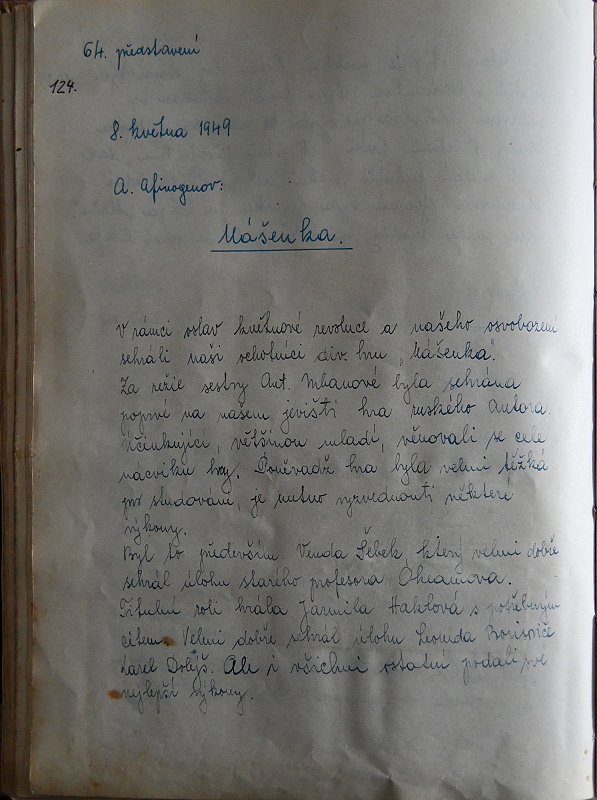 64. představení
124.
8. května 1949
A. Afinogenov:
Mášenka.
V rámci oslav květnové revoluce a našeho osvobození
sehráli naši ochotníci div. hru „Mášenka".
Za režie sestry Ant. Urbanové byla sehrána
poprvé na našem jevišti hra ruského autora.
Účinkující, většinou mladí, věnovali se cele
nácviku hry. Poněvadž hra byla velmi těžká
pro studování, je nutno vyzvednouti některé
výkony.
Byl to především Venda Šebek, který velmi dobře
sehrál úlohu starého profesora Okeamova.
Titulní roli hrála Jarmila s potřebným
citem. Velmi dobře sehrál úlohu Leonida Borisoviče
Karel Dolejš. Ale i všichni ostatní podali své
nejlepší výkony.